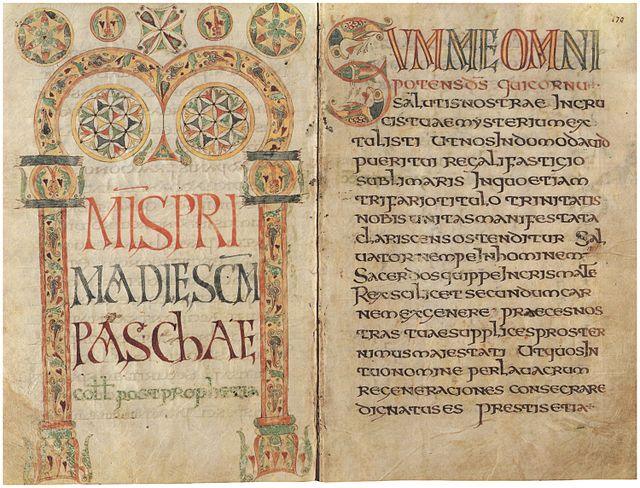 MIS̄ PRI
MA DIE SC̄M
PASChAE
coll post prophetia
170
SVMME OMNI
POTENS D̄S QUI CORNU
SALUTIS NOSTRAE IN CRU
CIS TUAE MYSTERIUM EX
TULISTI UT NOS IN DOMO DAUID
PUERI TUI REGALI FASTIGIO
SUBLIMARIS IN QUO ETIAM
TRIFARIO TITULO TRINITATIS
NOBIS UNITAS MANIFESTATA
CLARISCENS OSTENDITUR SAL
UATOR NEMPE IN HOMINEM
SACERDOS QUIPPE IN CRISMATE
REX SCILICET SECUNDUM CAR
NEM EX GENERE PRAECES NOS
TRAS TUAE SUPPLICES PROSTER
NIMUS MAIESTATI UT QUOS IN
TUO NOMINE PER LAUACRUM
REGENERACIONES CONSECRARE
DIGNATUS ES PRESTIS ETIA